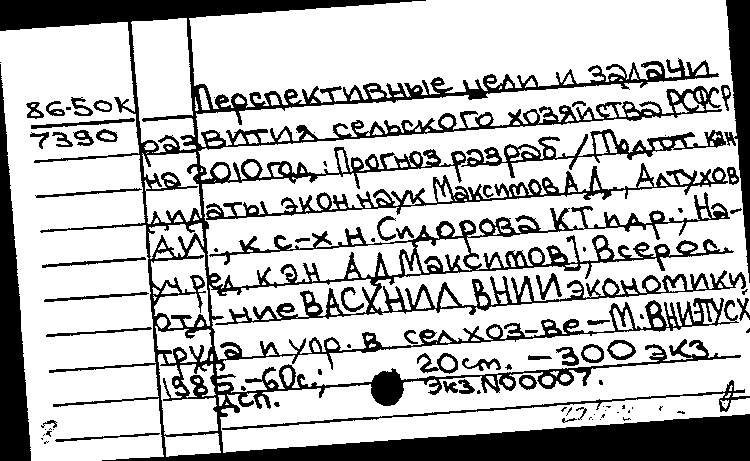 86-50К
7390
Перспективные цели и задачи
развития сельского хозяйства РСФСР
на 2010 год.: Прогноз. разраб. / [Подгот. кан-
дидаты экон. наук Максимов А.Д., Алтухов
А.И., к. с.-х. н. Сидорова К.Т. и др.; На-
уч. ред. к.э.н. А.Д. Максимов]; Всерос.
отд-ние ВАСХНИЛ, ВНИИ экономики,
труда и упр. в сел. хоз-ве. – М.: ВНИЭТУСХ,
1985. – 60 с.; 20 см. – 300 экз.
ДСП. Экз. N00007.